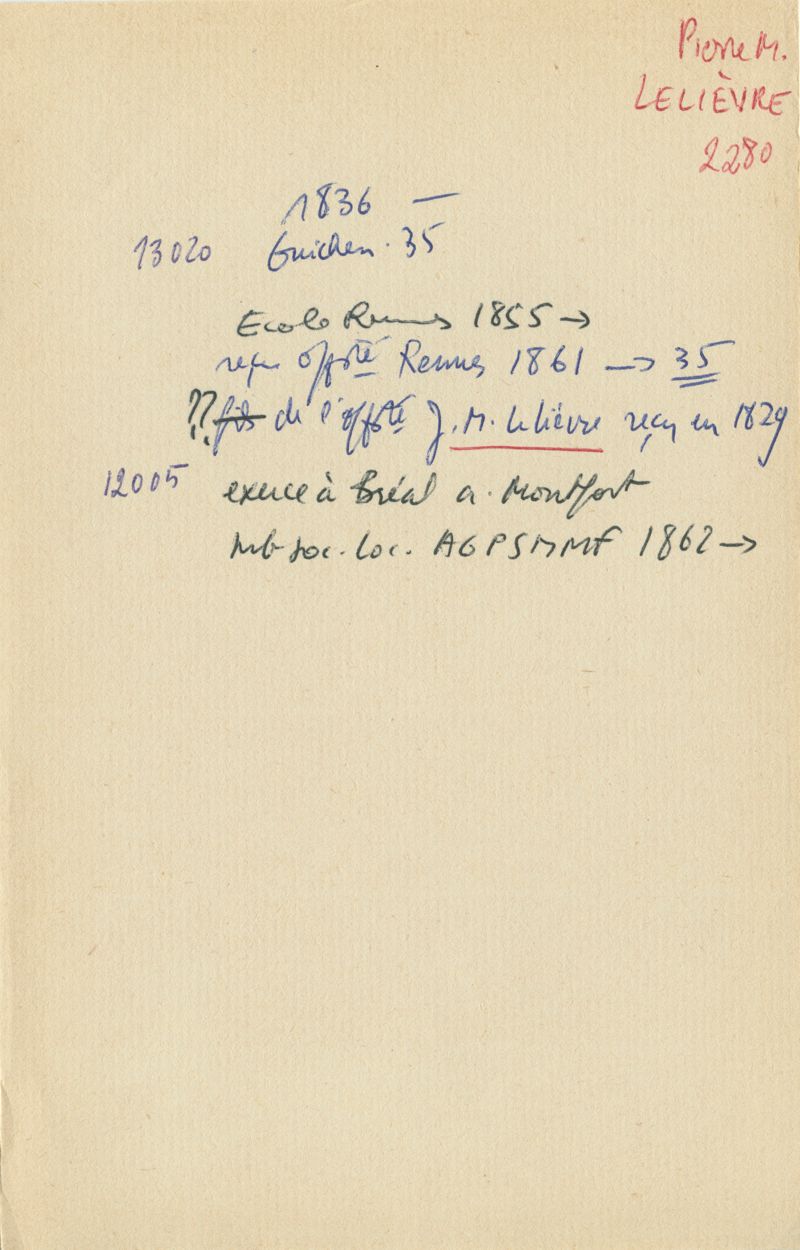 Pierre M.
LELIÈVRE
2280
1836 —
13020 Guichen. 35
Ecole Rennes 1855 →
reçu offté Rennes 1861 → 35
?? fils de l'offté J. M. Lelièvre reçu en 1829
12005 exerce à Bréal s. Montfort
mb soc. loc. AGPSMMF 1862 →